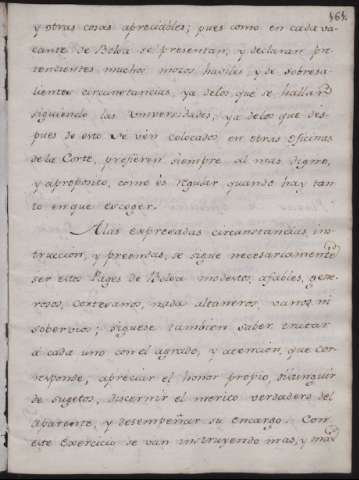 464.
y otras cosas apreciables; pues como en cada va-
cante de Bolsa se presentan, y declaran pre-
tendientes muchos mozos habiles, y de sobresa-
lientes circunstancias, ya delos que se hallan
siguiendo las Universidades, ya delos que des-
pues de esto se vén colocados en otras Oficinas
de la Corte, prefieren siempre al mas digno,
y aproposito, como es regular quando hay tan-
to en que escoger.
Alas expresadas circunstancias, ins-
truccion, y preemsas, se sigue necesariamente
ser estos Pages de Bolsa modestos, afables, gene-
rosos, cortesanos, nada altaneros, vanos ni
sobervios; siguese tambien saber tratar
a cada uno con el agrado, y atencion, que cor-
responde, apreciar el honor propio, distinguir
de sugetos, discernir el merito verdadero del
aparente, y desempeñar su encargo. Con
este exercicio se van instruyendo mas, y mas